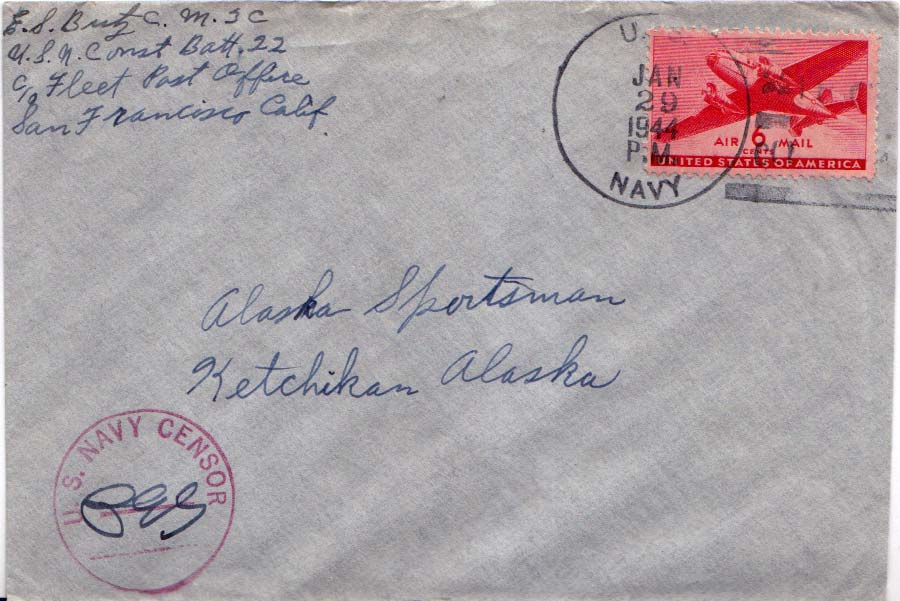 E. S. Butz C. M. 3 C
U. S. N. Const Batt. 22
c/o Fleet Post Office
San Francisco Calif
U. S.
JAN
29
1944
P.M.
NAVY
AIR 6 MAIL
CENTS
UNITED STATES OF AMERICA
Alaska Sportsman
Ketchikan Alaska
U. S. NAVY CENSOR